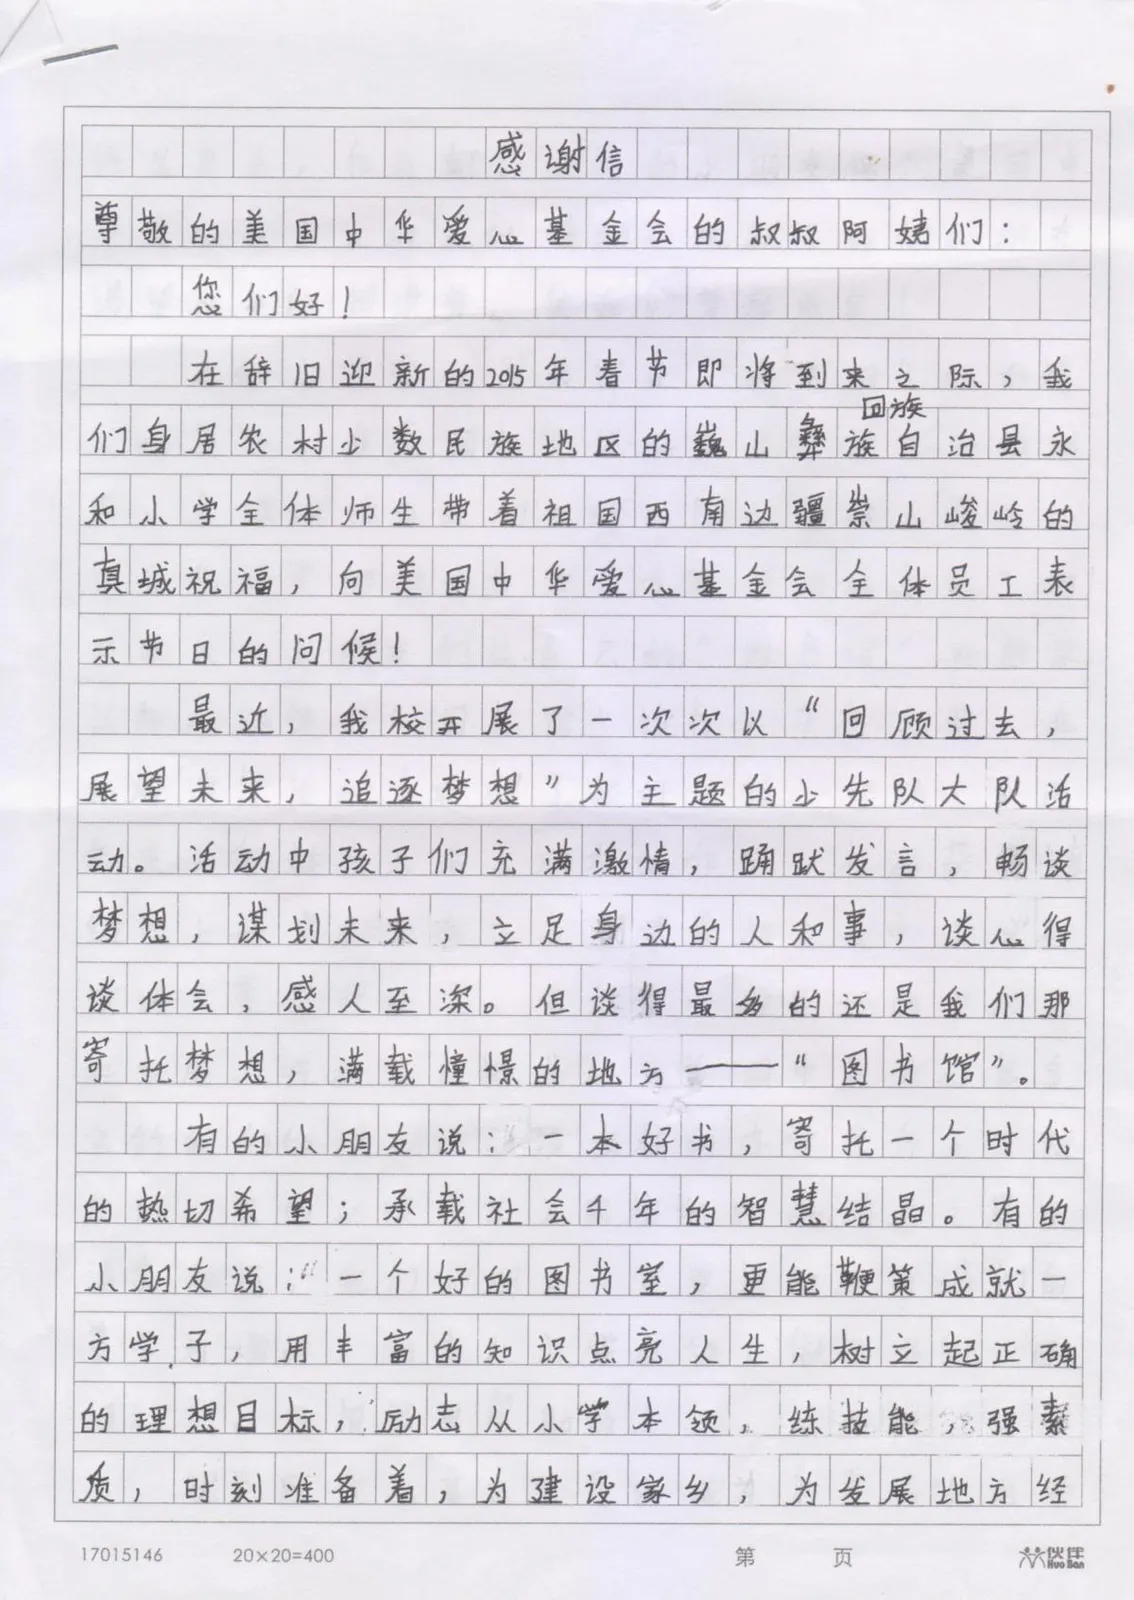 感谢信
尊敬的美国中华爱心基金会的叔叔阿姨们：
您们好！
在辞旧迎新的2015年春节即将到来之际，我
回族
们身居农村少数民族地区的巍山彝族自治县永
和小学全体师生带着祖国西南边疆崇山峻岭的
真城祝福，向美国中华爱心基金会全体员工表
示节日的问候！
最近，我校开展了一次次以“回顾过去，
展望未来，追逐梦想”为主题的少先队大队活
动。活动中孩子们充满激情，踊跃发言，畅谈
梦想，谋划未来，立足身边的人和事，谈心得
谈体会，感人至深。但谈得最多的还是我们那
寄托梦想，满载憧憬的地方——“图书馆”。
有的小朋友说：一本好书，寄托一个时代
的热切希望；承载社会千年的智慧结晶。有的
小朋友说：“一个好的图书室，更能鞭策成就一
方学子，用丰富的知识点亮人生，树立起正确
的理想目标，励志从小学本领，练技能，强素
质，时刻准备着，为建设家乡，为发展地方经
17015146 20×20=400 第 页 伙伴 HuoBan